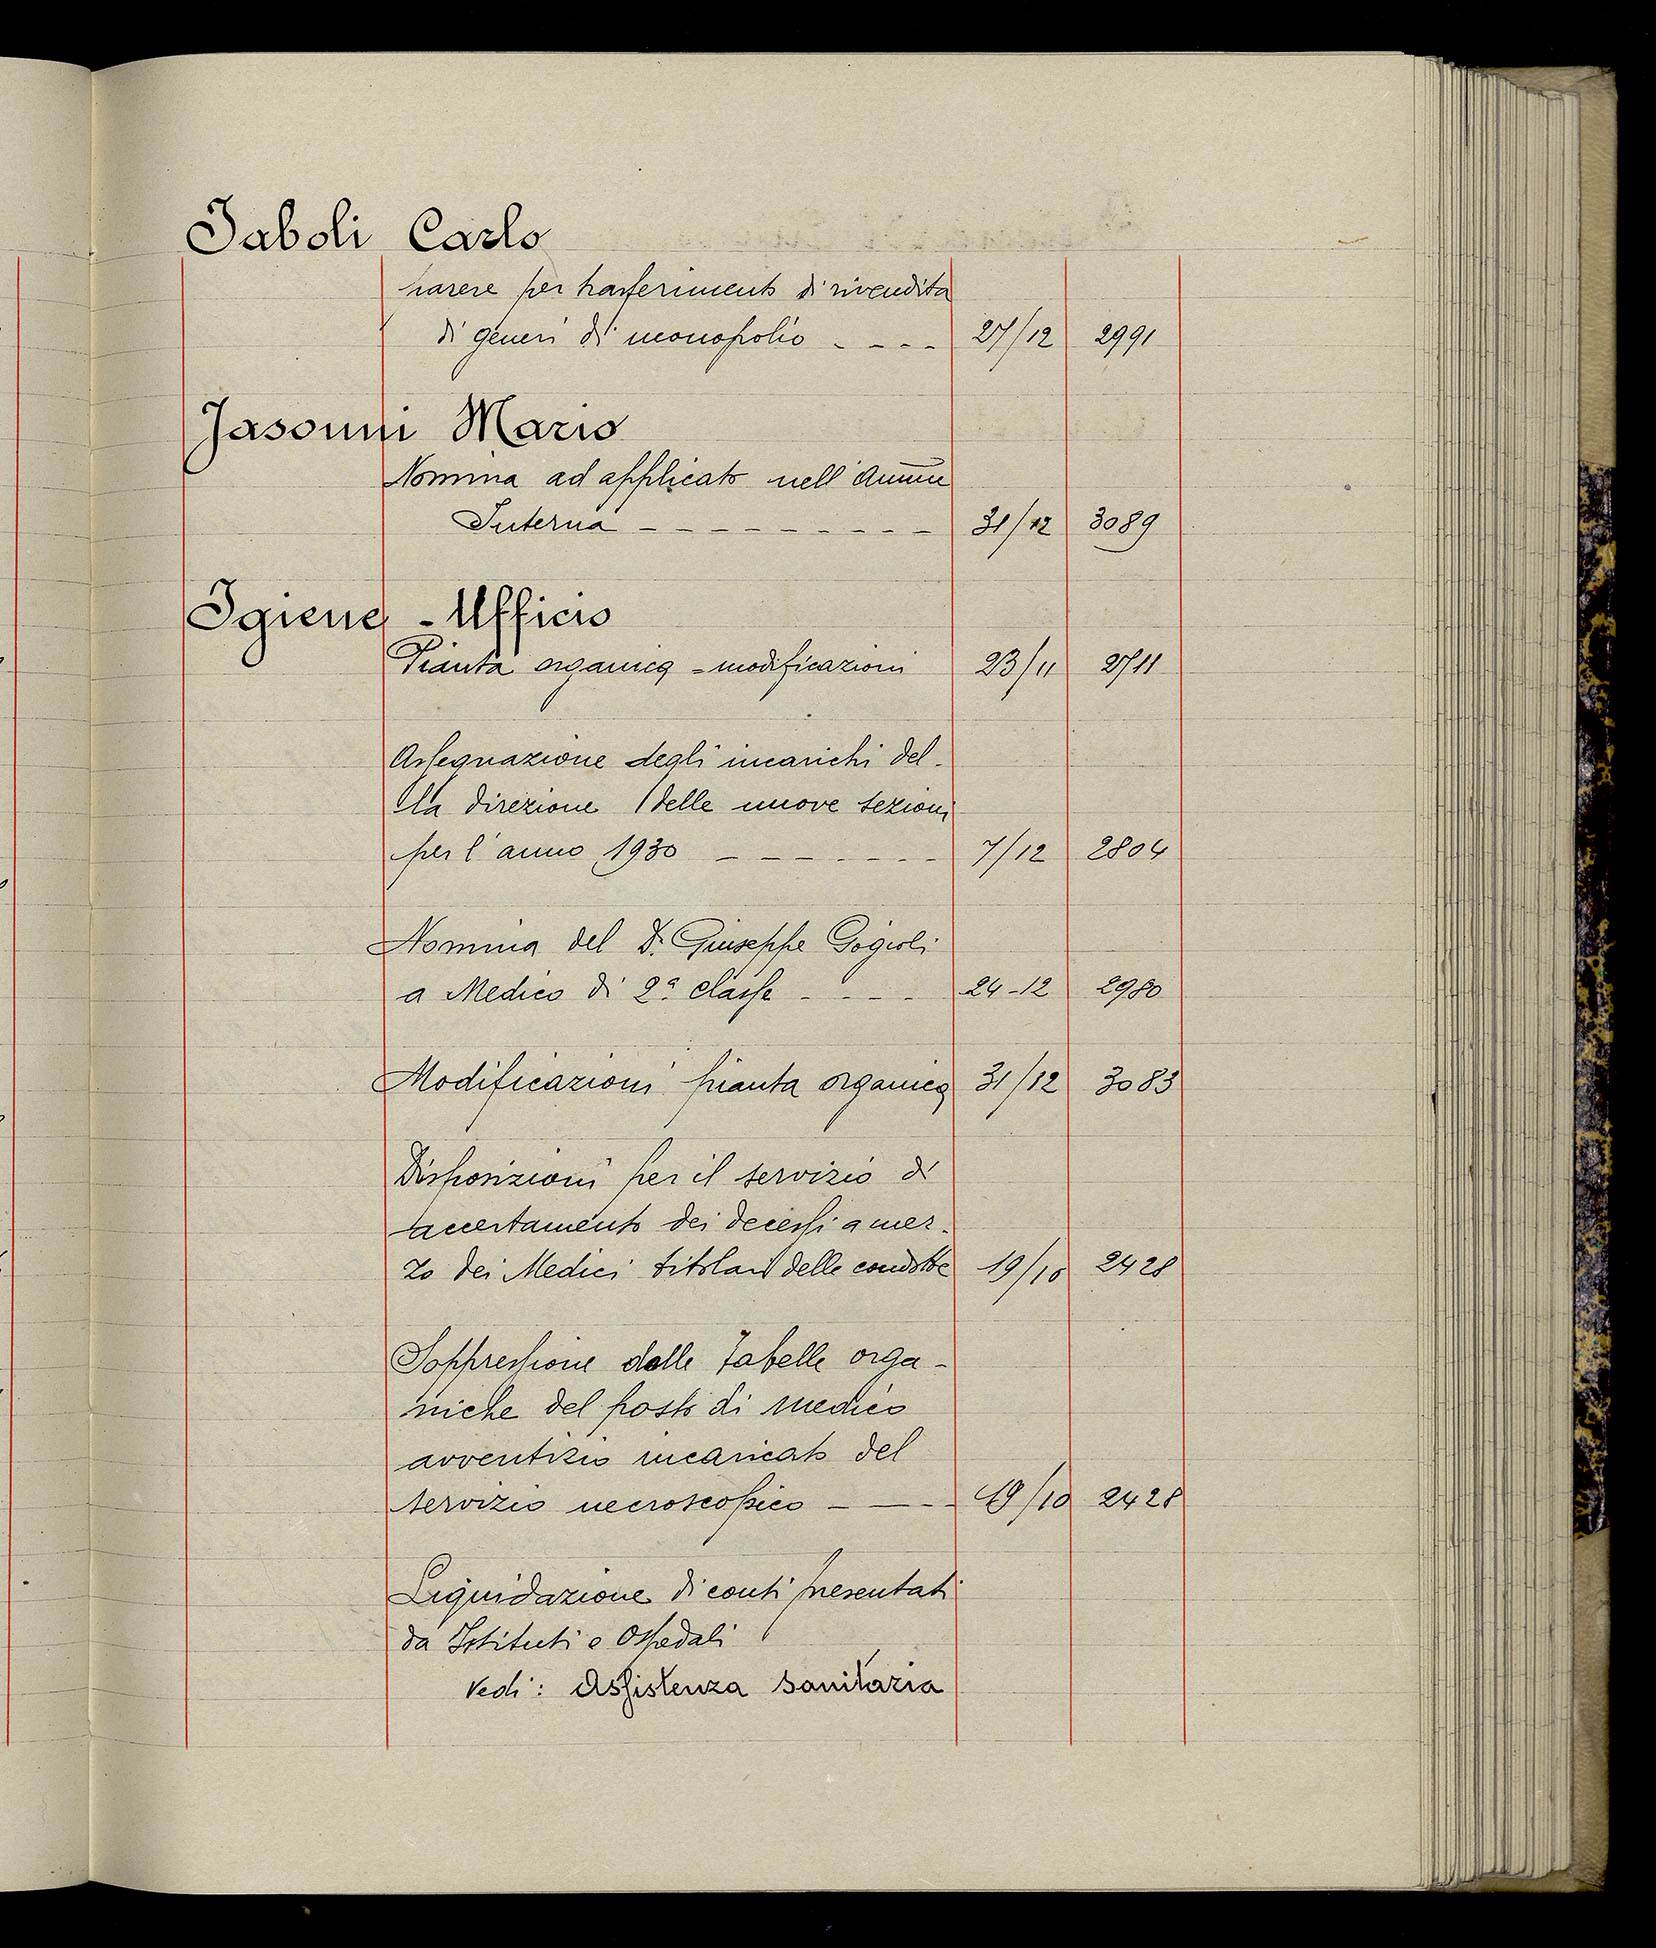 Jaboli Carlo
parere per trasferimento di rivendita
di generi di monopolio - - - - 27/12 2991
Jasonni Mario
Nomina ad applicato nell'Amm̅ne
Interna - - - - - - - - - - 31/12 3089
Igiene - Ufficio
Pianta organica = modificazioni 23/11 2711
Assegnazione degli incarichi del-
la direzione delle nuove sezioni
per l'anno 1930 - - - - - - - 7/12 2804
Nomina del Dr. Giuseppe Gogioli
a Medico di 2ª classe - - - - 24-12 2980
Modificazioni pianta organica 31/12 3083
Disposizioni per il servizio di
accertamento dei decessi a mez-
zo dei Medici titolari delle condotte 19/10 2428
Soppressione dalle tabelle orga-
niche del posto di medico
avventizio incaricato del
servizio necroscopico - - - - 19/10 2428
Liquidazione di conti presentati
da Istituti e Ospedali
Vedi: Assistenza sanitaria